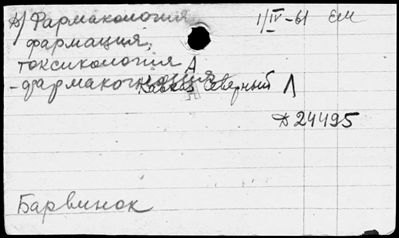 А) Фармакология, 1/IV-61 ЕМ
фармация,
токсикология
-фармакогнозия
Кавказ Северный Л
Д 24495
Барвинок